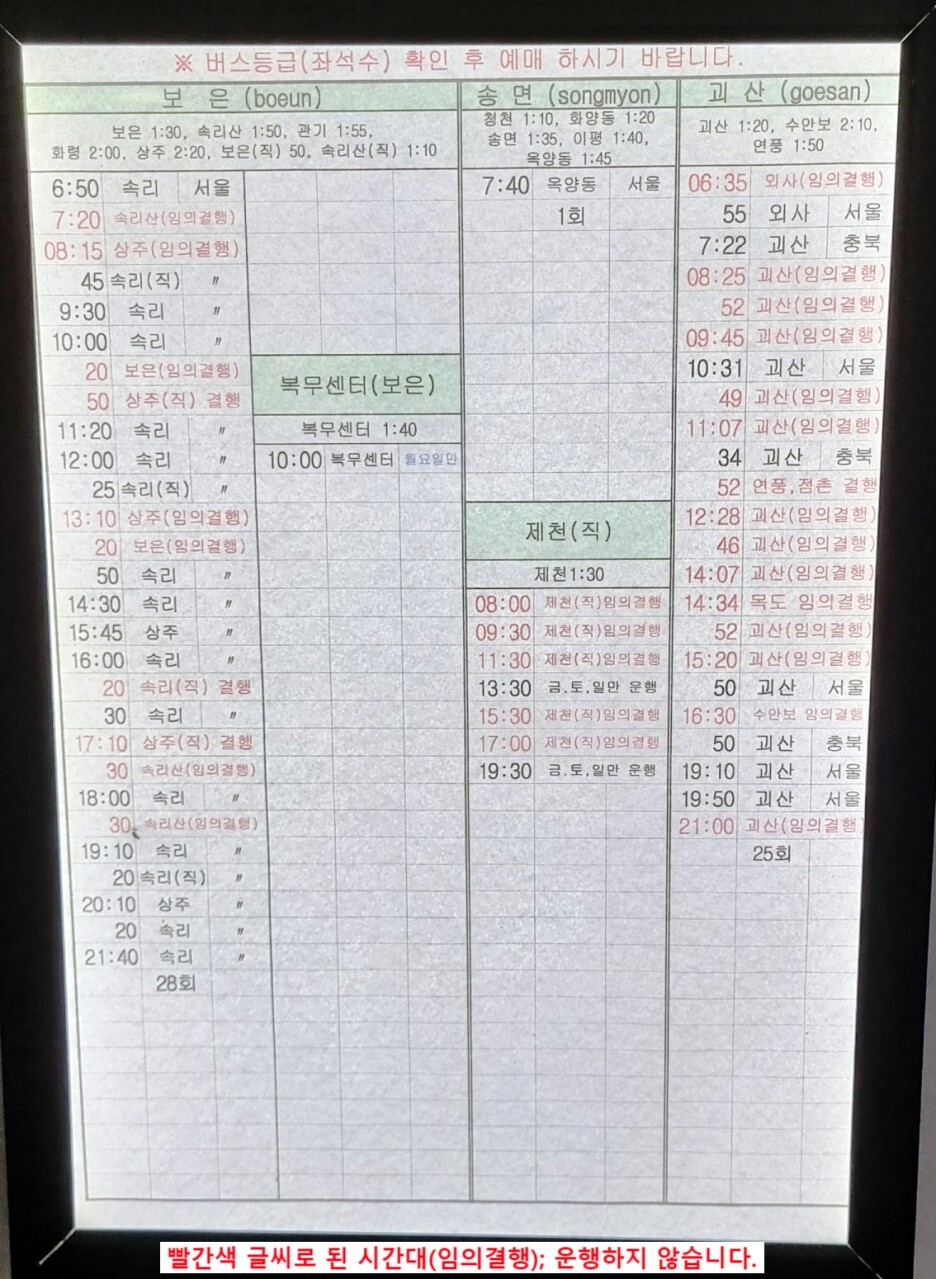 ※ 버스등급(좌석수) 확인 후 예매 하시기 바랍니다.
보 은 (boeun)
보은 1:30, 속리산 1:50, 관기 1:55,
화령 2:00, 상주 2:20, 보은(직) 50, 속리산(직) 1:10
6:50 속리 서울
7:20 속리산(임의결행)
08:15 상주(임의결행)
45 속리(직) 〃
9:30 속리 〃
10:00 속리 〃
20 보은(임의결행)
50 상주(직) 결행
11:20 속리 〃
12:00 속리 〃
25 속리(직) 〃
13:10 상주(임의결행)
20 보은(임의결행)
50 속리 〃
14:30 속리 〃
15:45 상주 〃
16:00 속리 〃
20 속리(직) 결행
30 속리 〃
17:10 상주(직) 결행
30 속리산(임의결행)
18:00 속리 〃
30 속리산(임의결행)
19:10 속리 〃
20 속리(직) 〃
20:10 상주 〃
20 속리 〃
21:40 속리 〃
28회
복무센터(보은)
복무센터 1:40
10:00 복무센터 월요일만
송 면 (songmyon)
청천 1:10, 화양동 1:20
송면 1:35, 이평 1:40,
옥양동 1:45
7:40 옥양동 서울
1회
제천(직)
제천1:30
08:00 제천(직)임의결행
09:30 제천(직)임의결행
11:30 제천(직)임의결행
13:30 금.토,일만 운행
15:30 제천(직)임의결행
17:00 제천(직)임의결행
19:30 금.토,일만 운행
괴 산 (goesan)
괴산 1:20, 수안보 2:10,
연풍 1:50
06:35 외사(임의결행)
55 외사 서울
7:22 괴산 충북
08:25 괴산(임의결행)
52 괴산(임의결행)
09:45 괴산(임의결행)
10:31 괴산 서울
49 괴산(임의결행)
11:07 괴산(임의결행)
34 괴산 충북
52 연풍,점촌 결행
12:28 괴산(임의결행)
46 괴산(임의결행)
14:07 괴산(임의결행)
14:34 목도 임의결행
52 괴산(임의결행)
15:20 괴산(임의결행)
50 괴산 서울
16:30 수안보 임의결행
50 괴산 충북
19:10 괴산 서울
19:50 괴산 서울
21:00 괴산(임의결행)
25회
빨간색 글씨로 된 시간대(임의결행); 운행하지 않습니다.